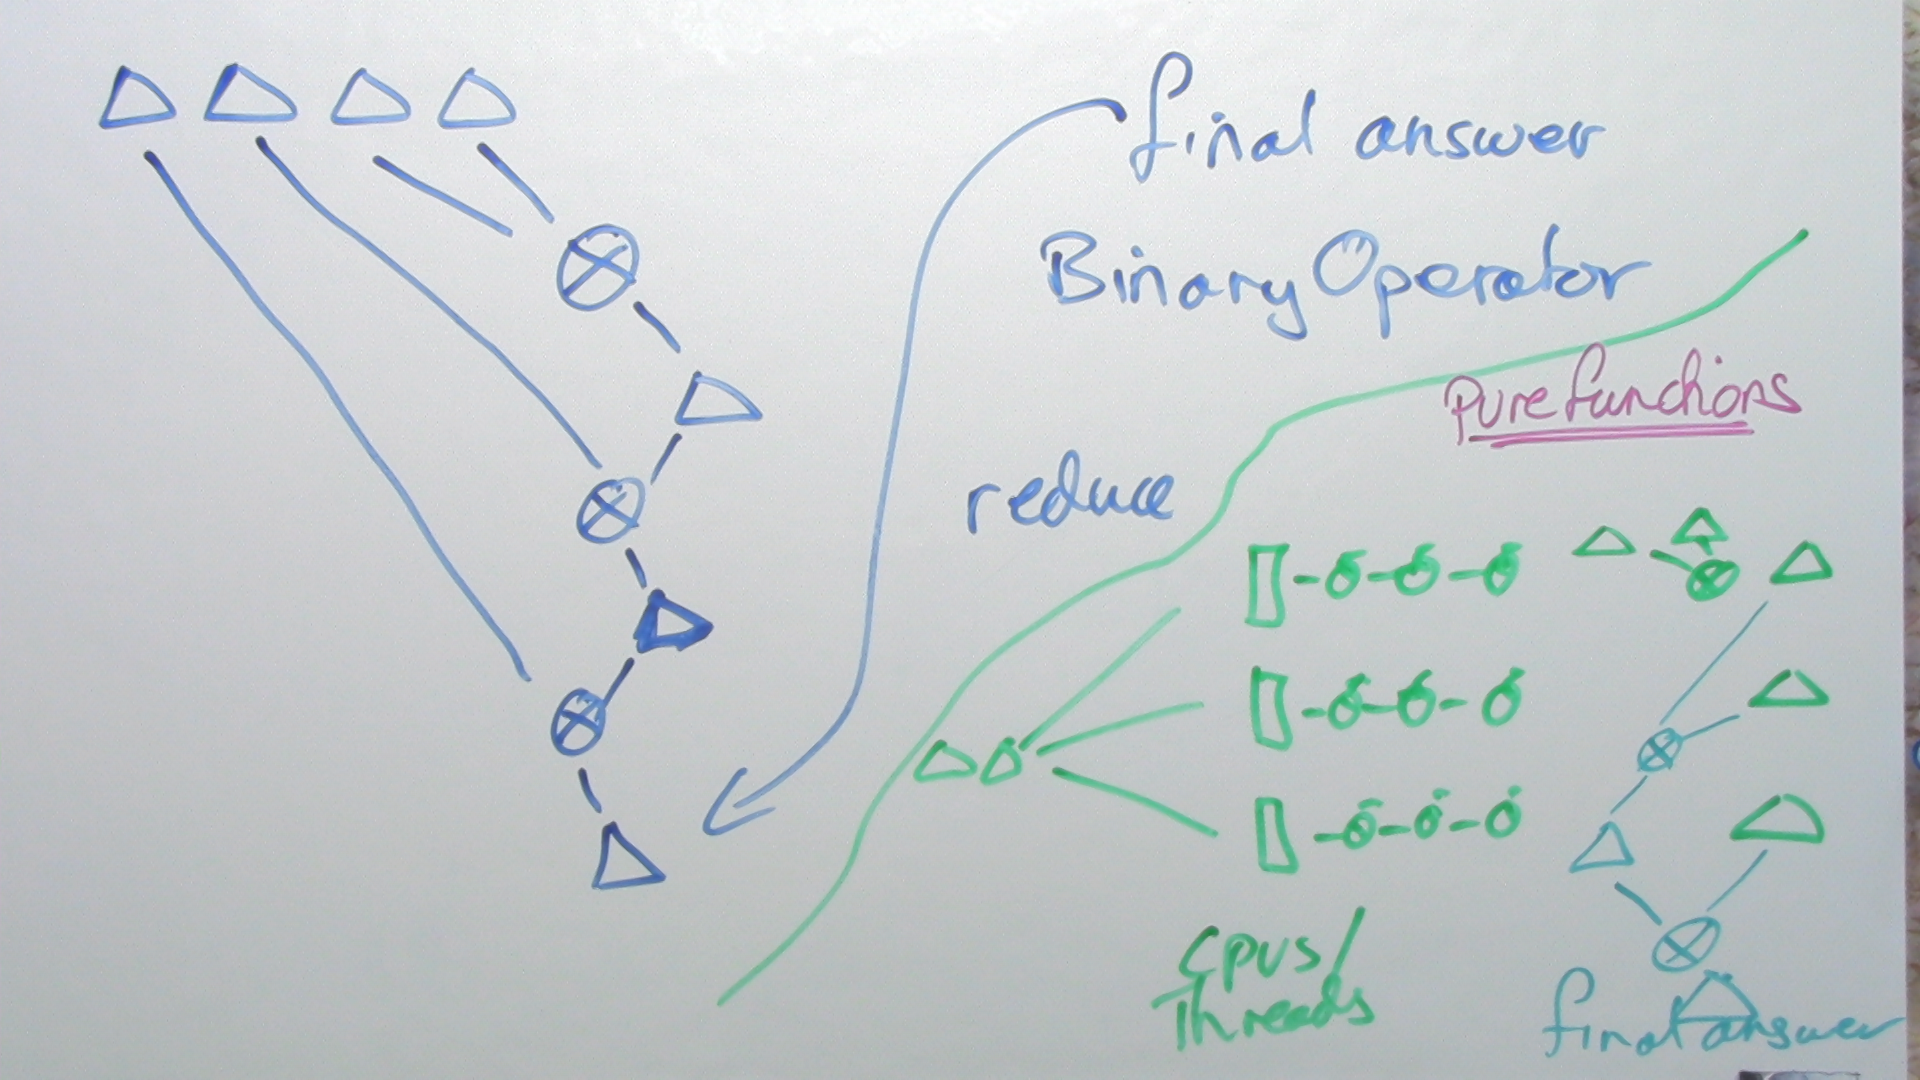 final answer
BinaryOperator
Pure functions
reduce
CPUs/
Threads
final answer